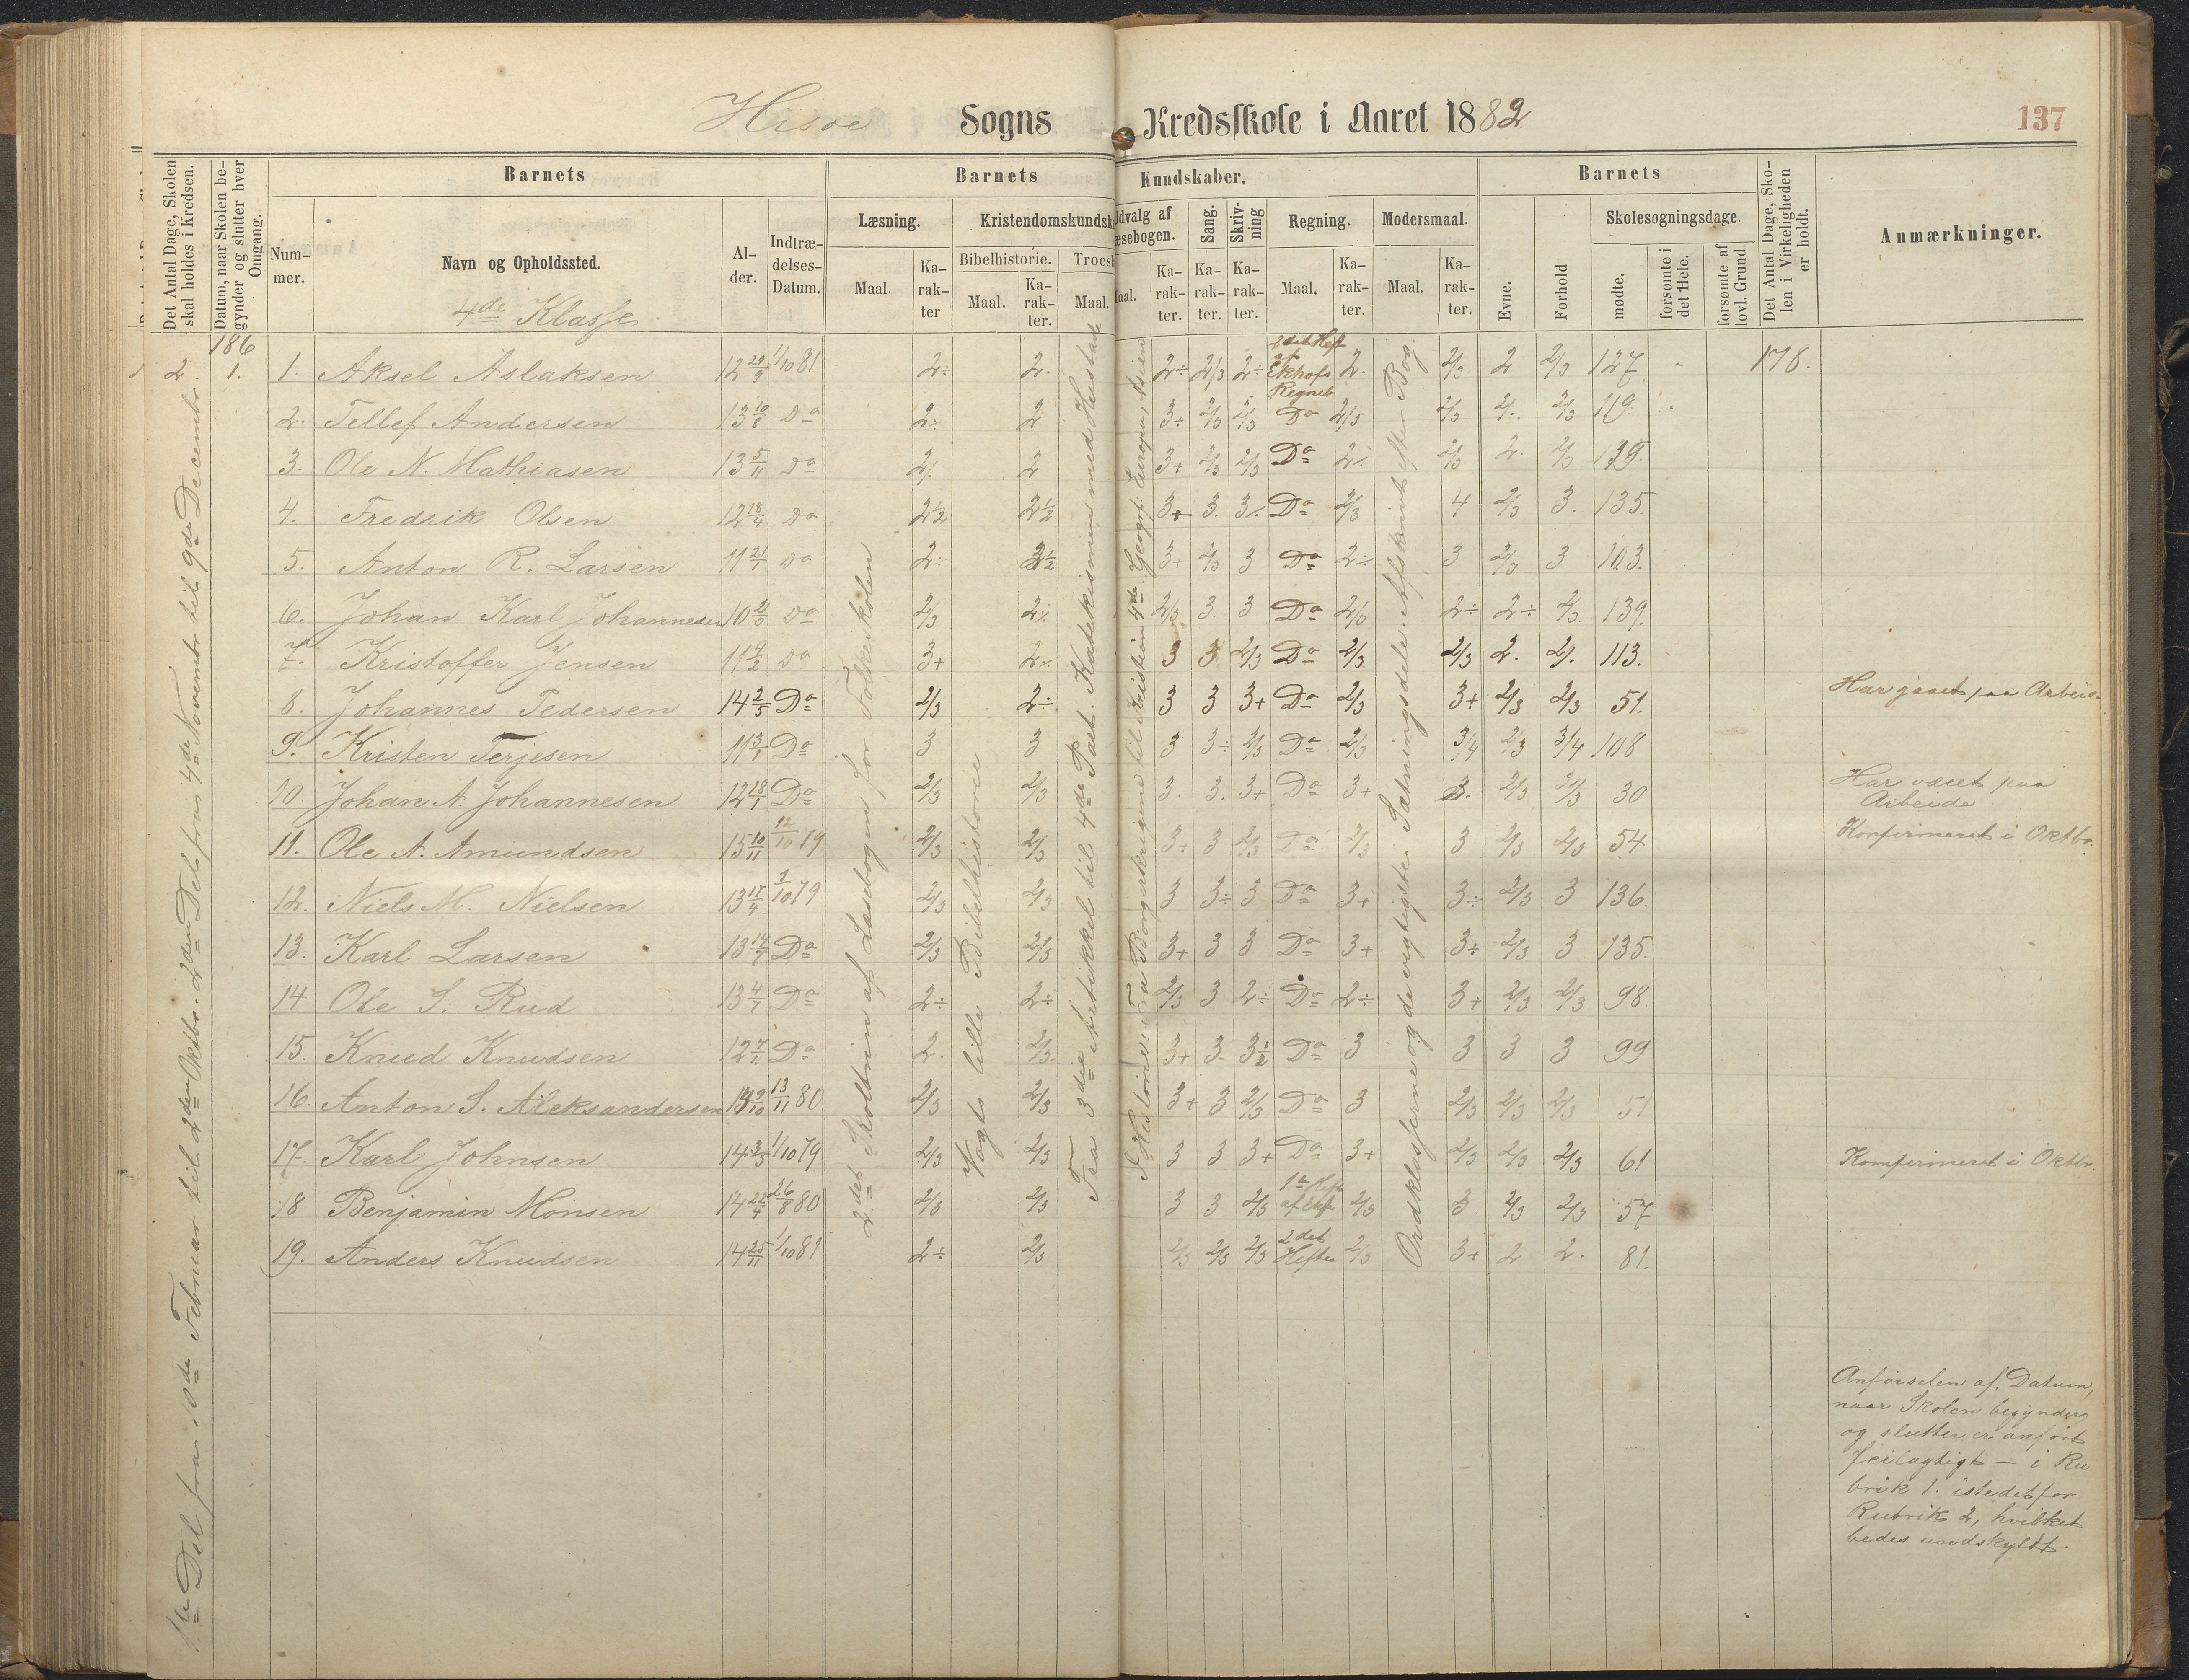 Hisøe Sogns Kredsskole i Aaret 1882
137
Det Antal Dage, Skolen skal holdes i Kredsen.
Datum, naar Skolen begynder og slutter hver Omgang.
Barnets
Nummer.
Navn og Opholdssted.
4de Klasse
Alder.
Indtrædelses-Datum.
Barnets Kundskaber.
Læsning.
Maal
Karakter
Kristendomskundsk
Bibelhistorie.
Maal.
Karakter.
Troes
Maal.
Udvalg af
æsebogen.
Maal.
Karakter.
Sang.
Karakter.
Skrivning
Karakter.
Regning.
Maal.
Karakter.
Modersmaal.
Maal.
Karakter.
Barnets
Evne.
Forhold
Skolesøgningsdage.
mødte.
forsømte i det Hele.
forsømte af lovl. Grund.
Det Antal Dage, Skolen i Virkeligheden er holdt.
Anmærkninger.
186
2. 1.
1ste Del fra 10de Februar til 2den Oktbr. 2den Del fra 4de Novembr til 9de Decembr.
2det Skoltrin af Læsebogen for Folkeskolen
Vogts lille Bibelhistorie
Fra 3die Artikkel til 4de Part. Katekismen med Hustavle
Historie: Fra Borgerkrigene til Kristian 4de Geogrf: Europa, Asien
Ordklasserne og de vigtigste Sætningsdele. Afskrivt efter Bog.
2det Hefte af Ekhofs Regneb
1. Aksel Aslaksen 12 29/9 1/10 81 2÷ 2. 2÷ 2/3 2÷ 2. 2/3 2 2/3 127 178.
2. Tellef Andersen 13 10/8 Do 2÷ 2 3÷ 2/3 2/3 Do 2/3 2/3 2/3 119.
3. Ole N. Mathiasen 13 5/11 Do 2 3+ 2/3 2/3 Do 2/3 2. 2/3 139.
4. Fredrik Olsen 12 18/4 Do 2½ 2½ 3+ 3. 3 Do 2/3 4 2/3 3. 135.
5. Anton R. Larsen 11 21/1 Do 2÷ 3+ 2/3 3 Do 2÷ 3 2/3 3 103.
6. Johan Karl Johannesen 10 2/5 Do 2/3 2/3 3 3 Do 2/3 2÷ 2÷ 2/3 139.
7. Kristoffer Jensen 11 4/2 Do 3+ 3 3 2/3 Do 2/3 2/3 2. 113.
8. Johannes Pedersen 14 2/5 Do 2/3 2÷ 3 3 3+ Do 2/3 3+ 2/3 2/3 51. Har været paa Arbeide
9. Kristen Terjesen 11 3/1 Do 3. 3 3 3÷ 2/3 Do 2/3 3/4 2/3 3/4 108
10 Johan A. Johannesen 12 18/1 Do 2/3 2/3 3. 3. 3+ Do 3+ 3. 2/3 2/3 30 Har været paa Arbeide
11. Ole A. Amundsen 15 10/11 12/10 79 2/3 2/3 3÷ 3 2/3 Do 2/3 3 2/3 2/3 54 Konfirmeret i Oktbr.
12. Niels M. Nielsen 13 17/4 1/10 79 2/3 2/3 3 3÷ 3 Do 3+ 3÷ 2/3 3 136.
13. Karl Larsen 13 14/7 Do 2/3 2/3 3+ 3 3 Do 3+ 3÷ 2/3 3 135.
14 Ole S. Rud 13 4/7 Do 2÷ 2÷ 2/3 3 2÷ Do 2÷ 3+ 2/3 2/3 98
15. Knud Knudsen 12 7/11 Do 2. 2/3. 3+ 3. 3½ Do 3 3 3 3 99
16. Anton S. Aleksandersen 13/11 80 2/3 2/3 3+ 3 2/3 Do 3 2/3 2/3 2/3 51
17. Karl Johnsen 14 3/3 1/10 79 2/3 2/3 3 3 3+ Do 3+ 2/3 2/3 2/3 61 Konfirmeret i Oktbr.
18 Benjamin Monsen 26/8 80 2/3 2/3 3 3 2/3 2/3 3 2/3 2/3 57
19. Anders Knudsen 14 25/11 1/10 81 2÷ 2/3 2/3 2/3 2/3 2det Hefte 2/3 3+ 2 2. 81.
Anførselen af Datum,
naar Skolen begynder
og slutter, er anført
feilagtigt – i Ru
brik 1. istedetfor
Rubrik 2, hvilket
bedes undskyldt.